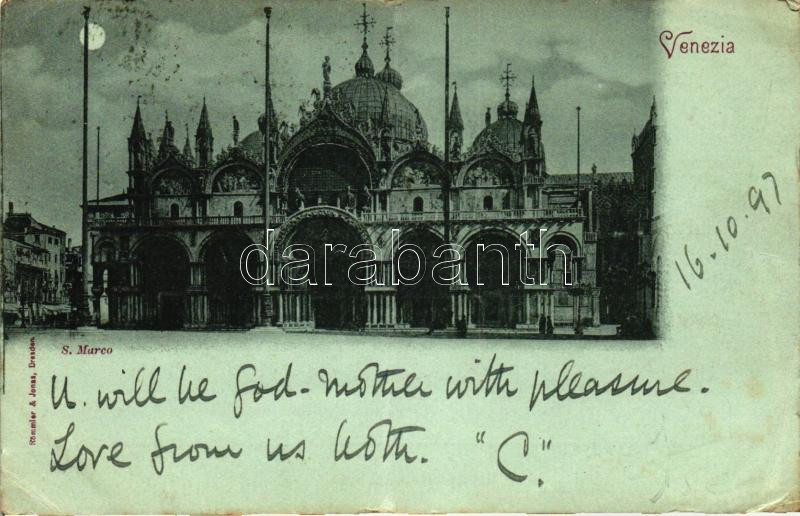 Venezia
16.10.97
darabanth
S. Marco
Römmler & Jonas, Dresden.
U. will be God-mother with pleasure.
Love from us both. "C."